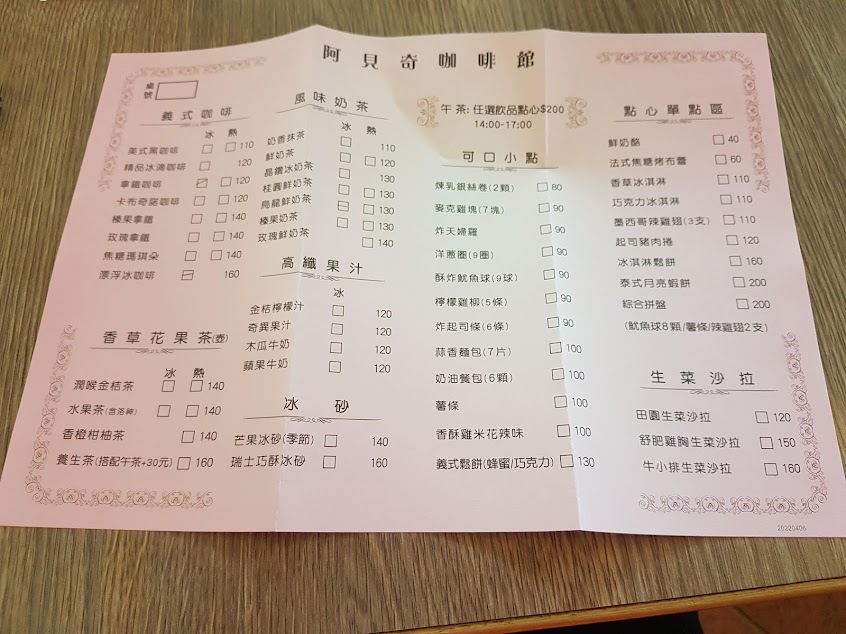 阿貝奇咖啡館
桌號
義式咖啡
冰 熱
美式黑咖啡 110
精品冰滴咖啡 120
拿鐵咖啡 120
卡布奇諾咖啡 120
榛果拿鐵 140
玫瑰拿鐵 140
焦糖瑪琪朵 140
漂浮冰咖啡 160
香草花果茶(壺)
冰 熱
潤喉金桔茶 140
水果茶(含洛神) 140
香橙柑柚茶 140
養生茶(搭配午茶+30元) 160
風味奶茶
冰 熱
奶香抹茶 110
鮮奶茶 120
晶鑽冰奶茶 120
桂圓鮮奶茶 130
烏龍鮮奶茶 130
榛果奶茶 130
玫瑰鮮奶茶 140
高纖果汁
冰
金桔檸檬汁 120
奇異果汁 120
木瓜牛奶 120
蘋果牛奶 120
冰砂
芒果冰砂(季節) 140
瑞士巧酥冰砂 160
午茶: 任選飲品點心$200
14:00-17:00
可口小點
煉乳銀絲卷(2顆) 80
麥克雞塊(7塊) 90
炸天婦羅 90
洋蔥圈(9圈) 90
酥炸魷魚球(9球) 90
檸檬雞柳(5條) 90
炸起司條(6條) 90
蒜香麵包(7片) 100
奶油餐包(6顆) 100
薯條 100
香酥雞米花辣味 100
義式鬆餅(蜂蜜/巧克力) 130
點心單點區
鮮奶酪 40
法式焦糖烤布蕾 60
香草冰淇淋 110
巧克力冰淇淋 110
墨西哥辣雞翅(3支) 110
起司豬肉捲 120
冰淇淋鬆餅 160
泰式月亮蝦餅 200
綜合拼盤 200
(魷魚球8顆/薯條/辣雞翅2支)
生菜沙拉
田園生菜沙拉 120
舒肥雞胸生菜沙拉 150
牛小排生菜沙拉 160
20220406